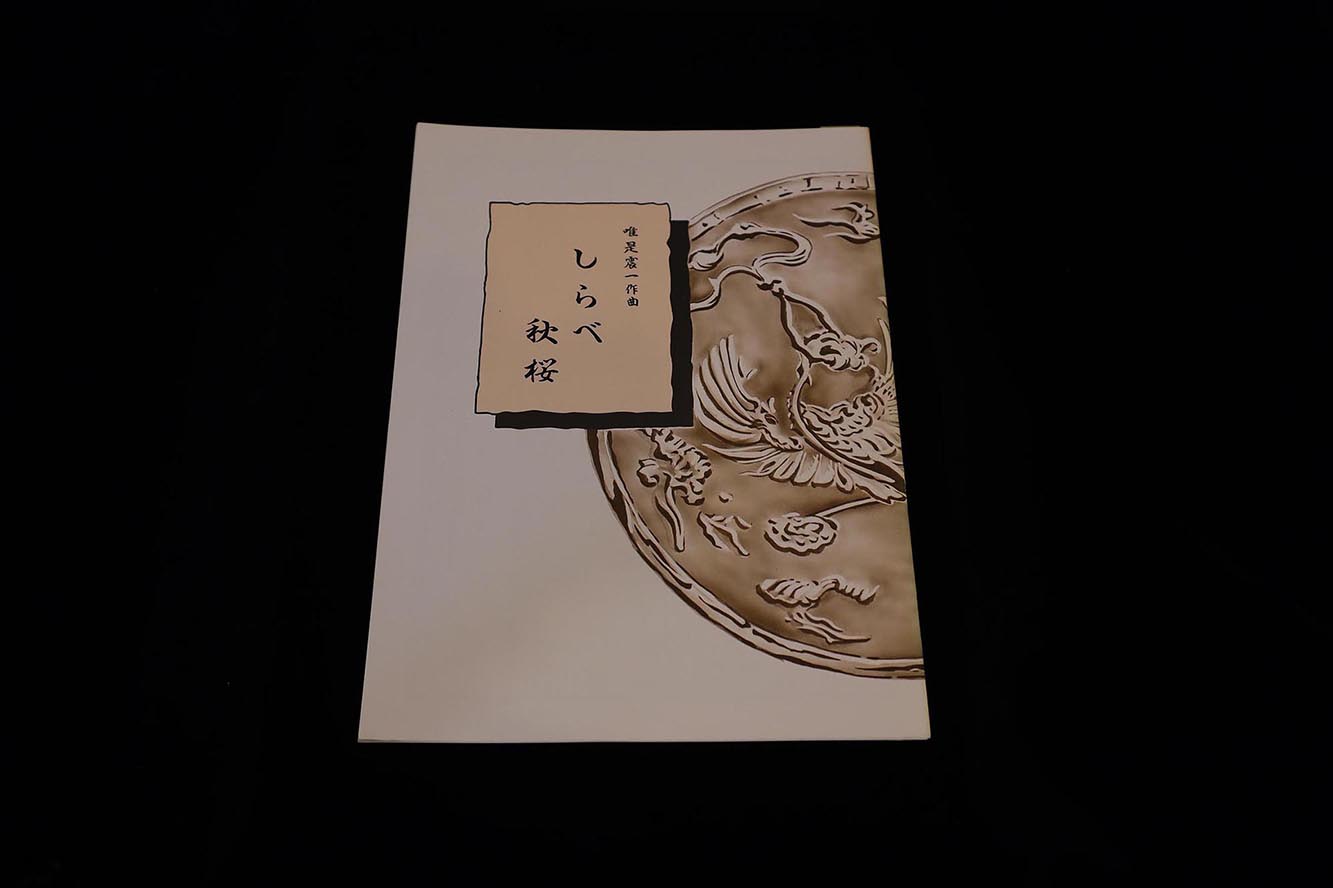 唯是震一作曲
しらべ
秋桜